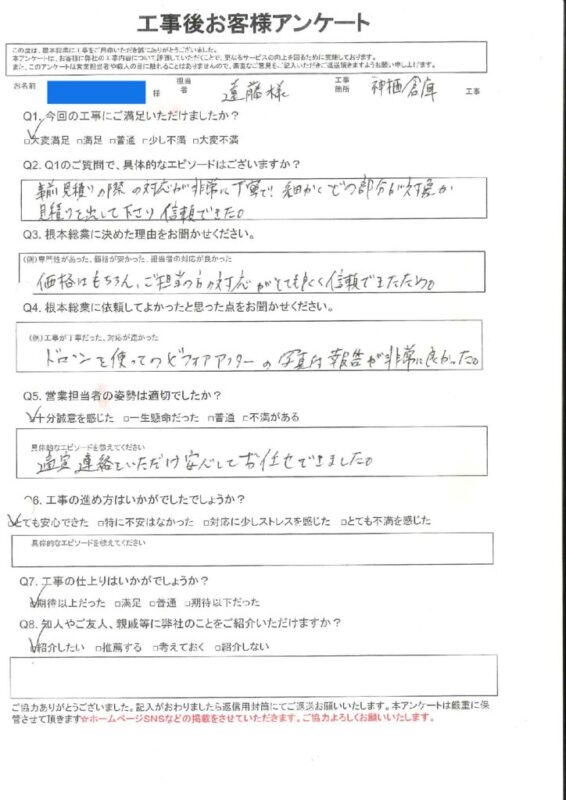 工事後お客様アンケート
この度は、根本総業に工事をご用命いただき誠にありがとうございました。
本アンケートは、お客様に弊社の工事内容について評価していただくことで、更なるサービスの向上を図るために実施しております。
また、このアンケートは営業担当者や職人の目に触れることはありませんので、率直なご意見をご記入いただきご返送頂きますようお願い申し上げます。
お名前 様 担当者 遠藤様 工事箇所 神栖倉庫 工事
Q1. 今回の工事にご満足いただけましたか?
□大変満足 □満足 □普通 □少し不満 □大変不満
Q2. Q1のご質問で、具体的なエピソードはございますか?
事前見積りの際の対応が非常に丁寧で、細かくどの部分が対象か
見積りを出して下さり信頼できた。
Q3. 根本総業に決めた理由をお聞かせください。
(例)専門性があった、価格が安かった、担当者の対応が良かった
価格はもちろん、ご担当の方の対応がとても良く信頼できたから。
Q4. 根本総業に依頼してよかったと思った点をお聞かせください。
(例)工事が丁寧だった、対応が速かった
ドローンを使ってのビフォアアフターの写真付報告が非常に良かった。
Q5. 営業担当者の姿勢は適切でしたか?
□十分誠意を感じた □一生懸命だった □普通 □不満がある
具体的なエピソードを教えてください
適宜連絡をいただけ安心してお任せできました。
Q6. 工事の進め方はいかがでしたでしょうか?
□とても安心できた □特に不安はなかった □対応に少しストレスを感じた □とても不満を感じた
具体的なエピソードを教えてください
Q7. 工事の仕上りはいかがでしょうか?
□期待以上だった □満足 □普通 □期待以下だった
Q8. 知人やご友人、親戚等に弊社のことをご紹介いただけますか?
□紹介したい □推薦する □考えておく □紹介しない
ご協力ありがとうございました。記入がおわりましたら返信用封筒にてご返送お願いいたします。本アンケートは厳重に保
管させて頂きます☆ホームページSNSなどの掲載をさせていただきます。ご協力よろしくお願いいたします。